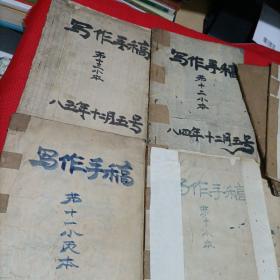 写作手稿
第十三小本
八五年十二月五号
写作手稿
第十二小本
八四年十二月五号
写作手稿
第十一小民本
写作手稿
第十小本